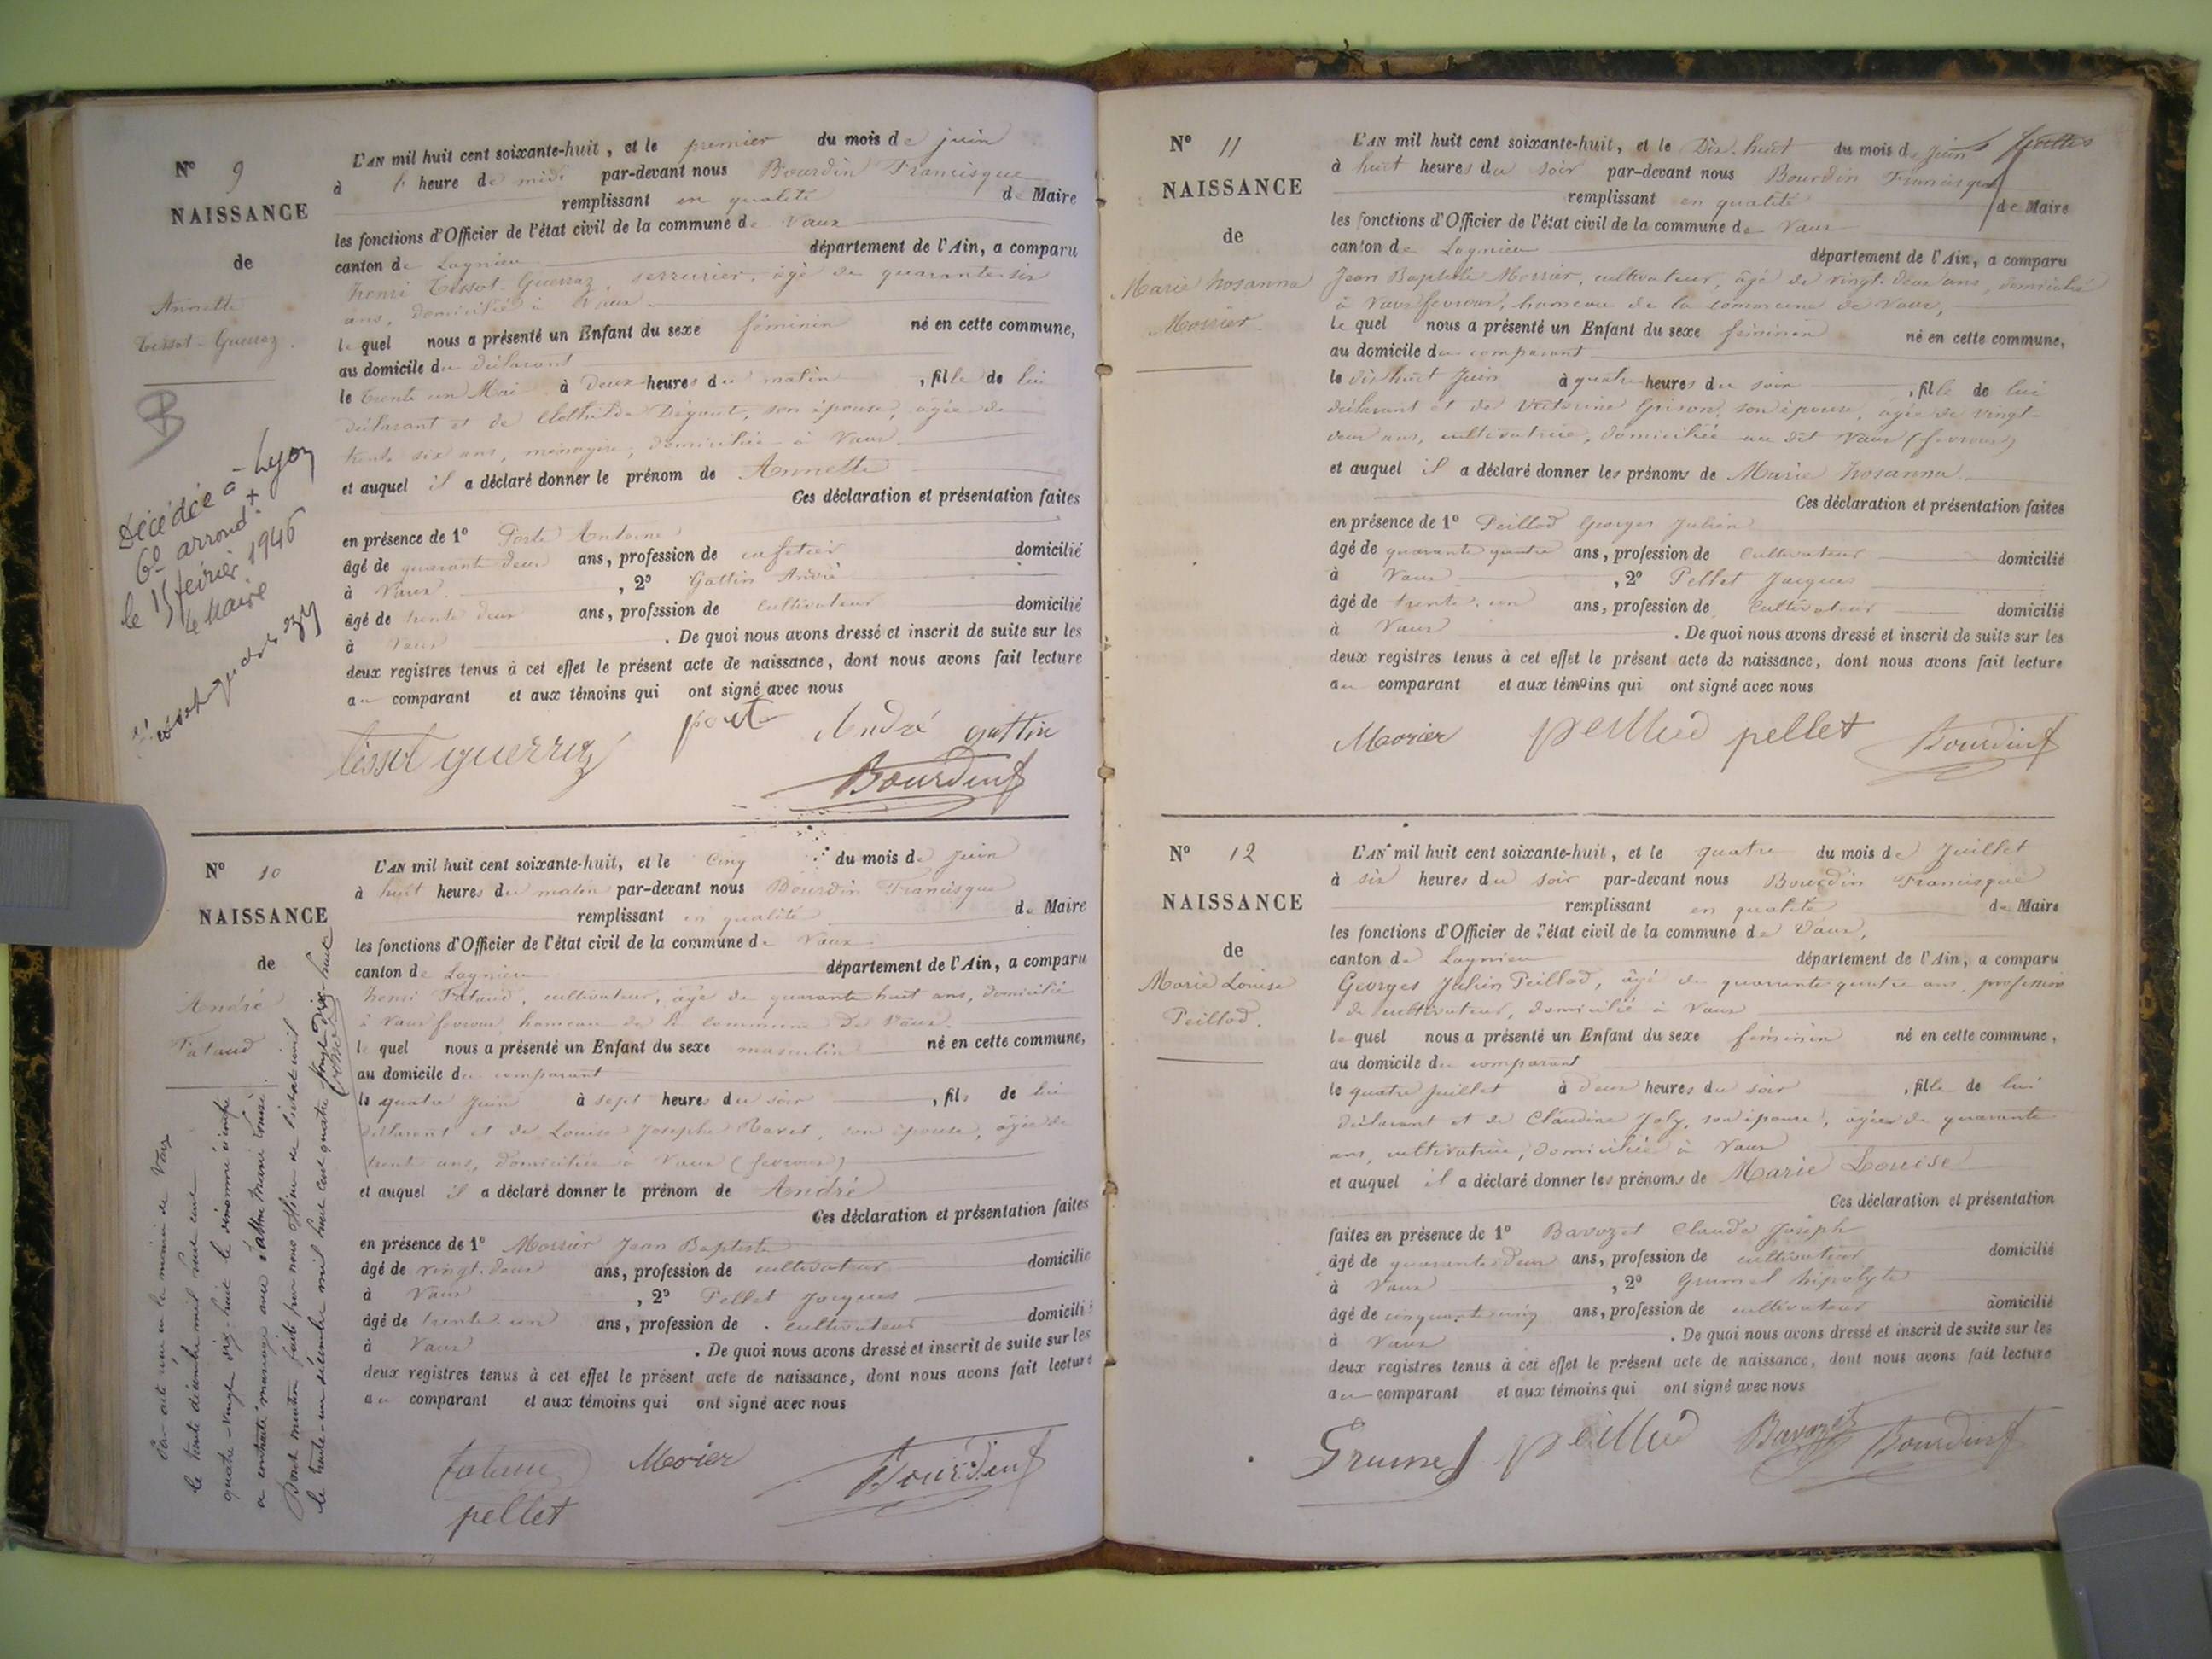 N° 9
NAISSANCE
de
Annette
Tissot-Guerraz.
Décédée à Lyon
6e arrondt
le 15 février 1946
le Maire
L'AN mil huit cent soixante-huit, et le premier du mois de juin
à heure de midi par-devant nous Bourdin Francisque
remplissant en qualité de Maire
les fonctions d'Officier de l'état civil de la commune de Vaux
canton de Lagnieu département de l'Ain, a comparu
henri Tissot-Guerraz, serrurier, âgé de quarante six
ans, domicilié à Vaux
lequel nous a présenté un Enfant du sexe féminin né en cette commune,
au domicile du déclarant
le trente un Mai à deux heures du matin, fille de lui
déclarant et de Clothilde Dégout, son épouse, âgée de
trente six ans, ménagère, domiciliée à Vaux
et auquel il a déclaré donner le prénom de Annette
Ces déclaration et présentation faites
en présence de 1° Porte Antoine
âgé de quarante deux ans, profession de cafetier domicilié
à Vaux, 2° Gottin André
âgé de trente deux ans, profession de cultivateur domicilié
à Vaux. De quoi nous avons dressé et inscrit de suite sur les
deux registres tenus à cet effet le présent acte de naissance, dont nous avons fait lecture
au comparant et aux témoins qui ont signé avec nous
tissot guerraz porte André gottin
Bourdin f
N° 10
NAISSANCE
de
André
Fataud
Par acte reçu en la mairie de Vaux
le trente décembre mil huit cent
quatre-vingt dix-huit le dénommé ci-contre
a contracté mariage avec Marie Louise.
Dont mention faite par nous officier de l'état civil
le trente-un décembre mil huit cent quatre-vingt-dix-huit
L'AN mil huit cent soixante-huit, et le Cinq du mois de juin
à huit heures du matin par-devant nous Bourdin Francisque
remplissant en qualité de Maire
les fonctions d'Officier de l'état civil de la commune de Vaux
canton de Lagnieu département de l'Ain, a comparu
henri Fataud, cultivateur, âgé de quarante huit ans, domicilié
à Vaux fevroux, hameau de la commune de Vaux.
lequel nous a présenté un Enfant du sexe masculin né en cette commune,
au domicile du comparant
le quatre juin à sept heures du soir, fils de lui
déclarant et de Louise Josephe Ravet, son épouse, âgée de
trent ans, domiciliée à Vaux (fevroux)
et auquel il a déclaré donner le prénom de André
Ces déclaration et présentation faites
en présence de 1° Morrier Jean Baptiste
âgé de vingt-deux ans, profession de cultivateur domicilié
à Vaux, 2° Pellet Jacques
âgé de trente-un ans, profession de cultivateur domicilié
à Vaux. De quoi nous avons dressé et inscrit de suite sur les
deux registres tenus à cet effet le présent acte de naissance, dont nous avons fait lecture
au comparant et aux témoins qui ont signé avec nous
fataud Morier Bourdin f
pellet
N° 11
NAISSANCE
de
Marie hosanna
Morrier.
L'AN mil huit cent soixante-huit, et le Dix-huit du mois de juin
à huit heures du soir par-devant nous Bourdin Francisque
remplissant en qualité de Maire
les fonctions d'Officier de l'état civil de la commune de Vaux
canton de Lagnieu département de l'Ain, a comparu
Jean Baptiste Morrier, cultivateur, âgé de vingt-deux ans, domicilié
à Vaux fevroux, hameau de la commune de Vaux,
lequel nous a présenté un Enfant du sexe féminin né en cette commune,
au domicile du comparant
le dix huit juin à quatre heures du soir, fille de lui
déclarant et de Victorine Grison, son épouse, âgée de vingt-
deux ans, cultivatrice, domiciliée au dit Vaux (fevroux)
et auquel il a déclaré donner les prénoms de Marie hosanna
Ces déclaration et présentation faites
en présence de 1° Peillod Georges Julien
âgé de quarante quatre ans, profession de Cultivateur domicilié
à Vaux, 2° Pellet Jacques
âgé de trente-un ans, profession de Cultivateur domicilié
à Vaux. De quoi nous avons dressé et inscrit de suite sur les
deux registres tenus à cet effet le présent acte de naissance, dont nous avons fait lecture
au comparant et aux témoins qui ont signé avec nous
Morier peillod pellet Bourdin f
N° 12
NAISSANCE
de
Marie Louise
Peillod.
L'AN mil huit cent soixante-huit, et le quatre du mois de Juillet
à six heures du soir par-devant nous Bourdin Francisque
remplissant en qualité de Maire
les fonctions d'Officier de l'état civil de la commune de Vaux,
canton de Lagnieu département de l'Ain, a comparu
Georges Julien Peillod, âgé de quarante quatre ans, profession
de cultivateur, domicilié à Vaux
lequel nous a présenté un Enfant du sexe féminin né en cette commune,
au domicile du comparant
le quatre juillet à deux heures du soir, fille de lui
déclarant et de Claudine Joly, son épouse, âgée de quarante
ans, cultivatrice, domiciliée à Vaux
et auquel il a déclaré donner les prénoms de Marie Louise
Ces déclaration et présentation
faites en présence de 1° Bavozet Claude Joseph
âgé de quarante deux ans, profession de cultivateur domicilié
à Vaux, 2° Grumel hipolyte
âgé de cinquante cinq ans, profession de cultivateur domicilié
à Vaux. De quoi nous avons dressé et inscrit de suite sur les
deux registres tenus à cet effet le présent acte de naissance, dont nous avons fait lecture
au comparant et aux témoins qui ont signé avec nous
Grumel peillod Bavozet Bourdin f